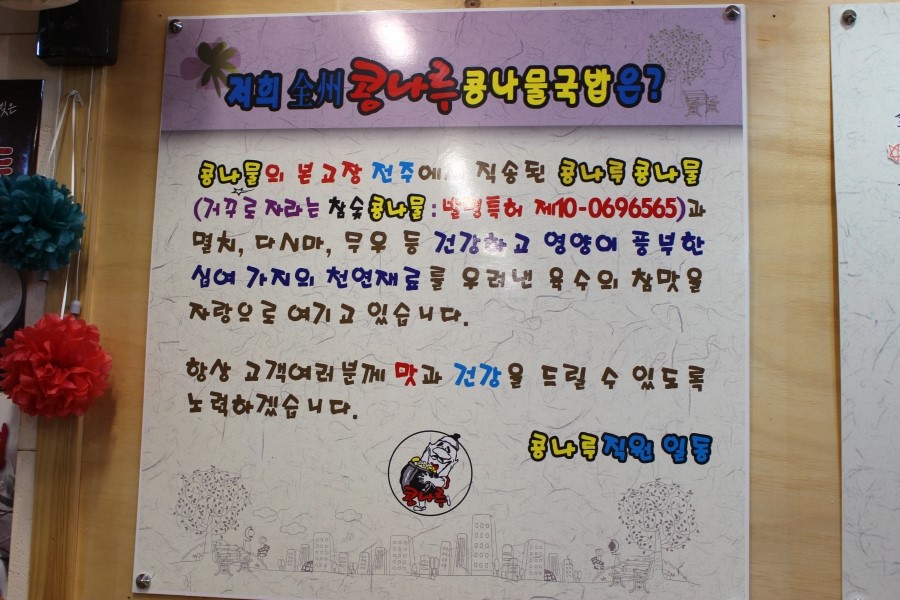 저희 全州 콩나루 콩나물국밥은?
콩나물의 본고장 전주에서 직송된 콩나루 콩나물
(거꾸로 자라는 참숯콩나물 : 발명특허 제10-0696565)과
멸치, 다시마, 무우 등 건강하고 영양이 풍부한
십여 가지의 천연재료를 우려낸 육수의 참맛을
자랑으로 여기고 있습니다.
항상 고객여러분께 맛과 건강을 드릴 수 있도록
노력하겠습니다.
콩나루 직원 일동
콩나루